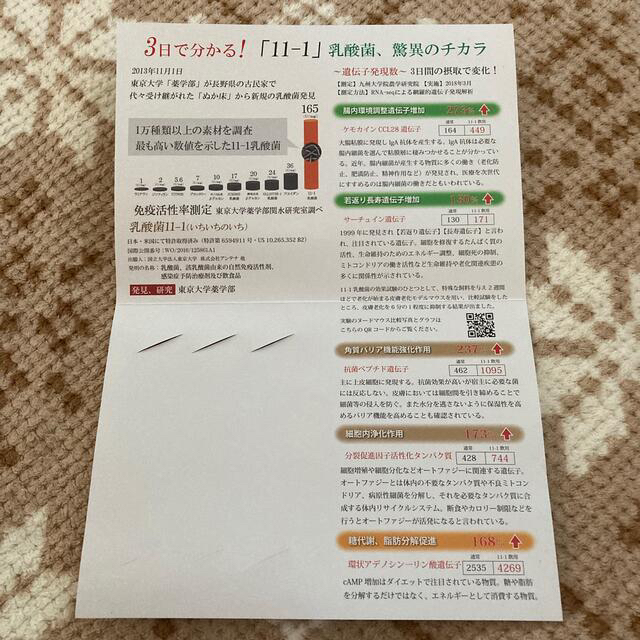 3日で分かる!「11-1」乳酸菌、驚異のチカラ
2013年11月1日
東京大学「薬学部」が長野県の古民家で
代々受け継がれた「ぬか床」から新規の乳酸菌発見
1万種類以上の素材を調査
最も高い数値を示した11-1乳酸菌
165
1
2
5
7
10
17
20
24
36
11-1
乳酸菌
免疫活性率測定 東京大学薬学部関水研究室調べ
乳酸菌11-1(いちいちのいち)
日本・米国にて特許取得済み(特許第6594911号・US 10,265,352 B2)
国際公開番号:WO/2016/125861A1
出願人:国立大学法人東京大学 株式会社アンテナ 他
発明の名称:乳酸菌、該乳酸菌由来の自然免疫活性剤、
感染症予防治療剤及び飲食品
発見、研究 東京大学薬学部
~遺伝子発現数~ 3日間の摂取で変化!
【測定】九州大学院農学研究院【実施】2018年3月
【測定方法】RNA-seqによる網羅的遺伝子発現解析
腸内環境調整遺伝子増加
通常 11-1飲用
ケモカイン CCL28 遺伝子 164 449
大腸粘膜に発現し IgA抗体を産生する。IgA抗体は必要な
腸内細菌を選んで粘膜層に棲みつかせることが分かってい
る。近年、腸内細菌が産生する物質に多くの働き(老化防
止、肥満防止、精神作用など)が発見され、医療を次世代
にすすめるのは腸内細菌の働きだともいわれている。
若返り長寿遺伝子増加
通常 11-1飲用
サーチュイン遺伝子 130 171
1999年に発見された【若返り遺伝子】【長寿遺伝子】と言わ
れ、注目されている遺伝子。細胞を修復するたんぱく質の
活性、生命維持のためのエネルギー調整、細胞死の抑制、
ミトコンドリアの働き活性など生命維持や老化関連疾患の
多くに関係性が示されている。
11-1乳酸菌の効果試験のひとつとして、特殊な飼料を与え2週間
ほどで老化が始まる皮膚老化モデルマウスを用い、比較試験をした
ところ、皮膚老化を6分の1程度に抑制する結果が出ました。
実験のヌードマウス比較写真とグラフは
こちらのQRコードからご覧ください。
角質バリア機能強化作用 237%
通常 11-1飲用
抗菌ペプチド遺伝子 462 1095
主に上皮細胞に発現する。抗菌効果が高いが宿主に必要な菌
には反応しない。皮膚においては細胞間を引き締めることで
細菌等の侵入を防ぐ。また水分を逃さないように保湿性を高
めるバリア機能を高めることも確認されている。
細胞内浄化作用 173%
通常 11-1飲用
分裂促進因子活性化タンパク質 428 744
細胞増殖や細胞分化などオートファジーに関連する遺伝子。
オートファジーとは体内の不要なタンパク質や不良ミトコン
ドリア、病原性細菌を分解し、それを必要なタンパク質に合
成する体内リサイクルシステム。断食やカロリー制限などを
行うとオートファジーが活発になると言われている。
糖代謝、脂肪分解促進 168%
通常 11-1飲用
環状アデノシンーリン酸遺伝子 2535 4269
cAMP増加はダイエットで注目されている物質。糖や脂肪
を分解するだけではなく、エネルギーとして消費する物質。